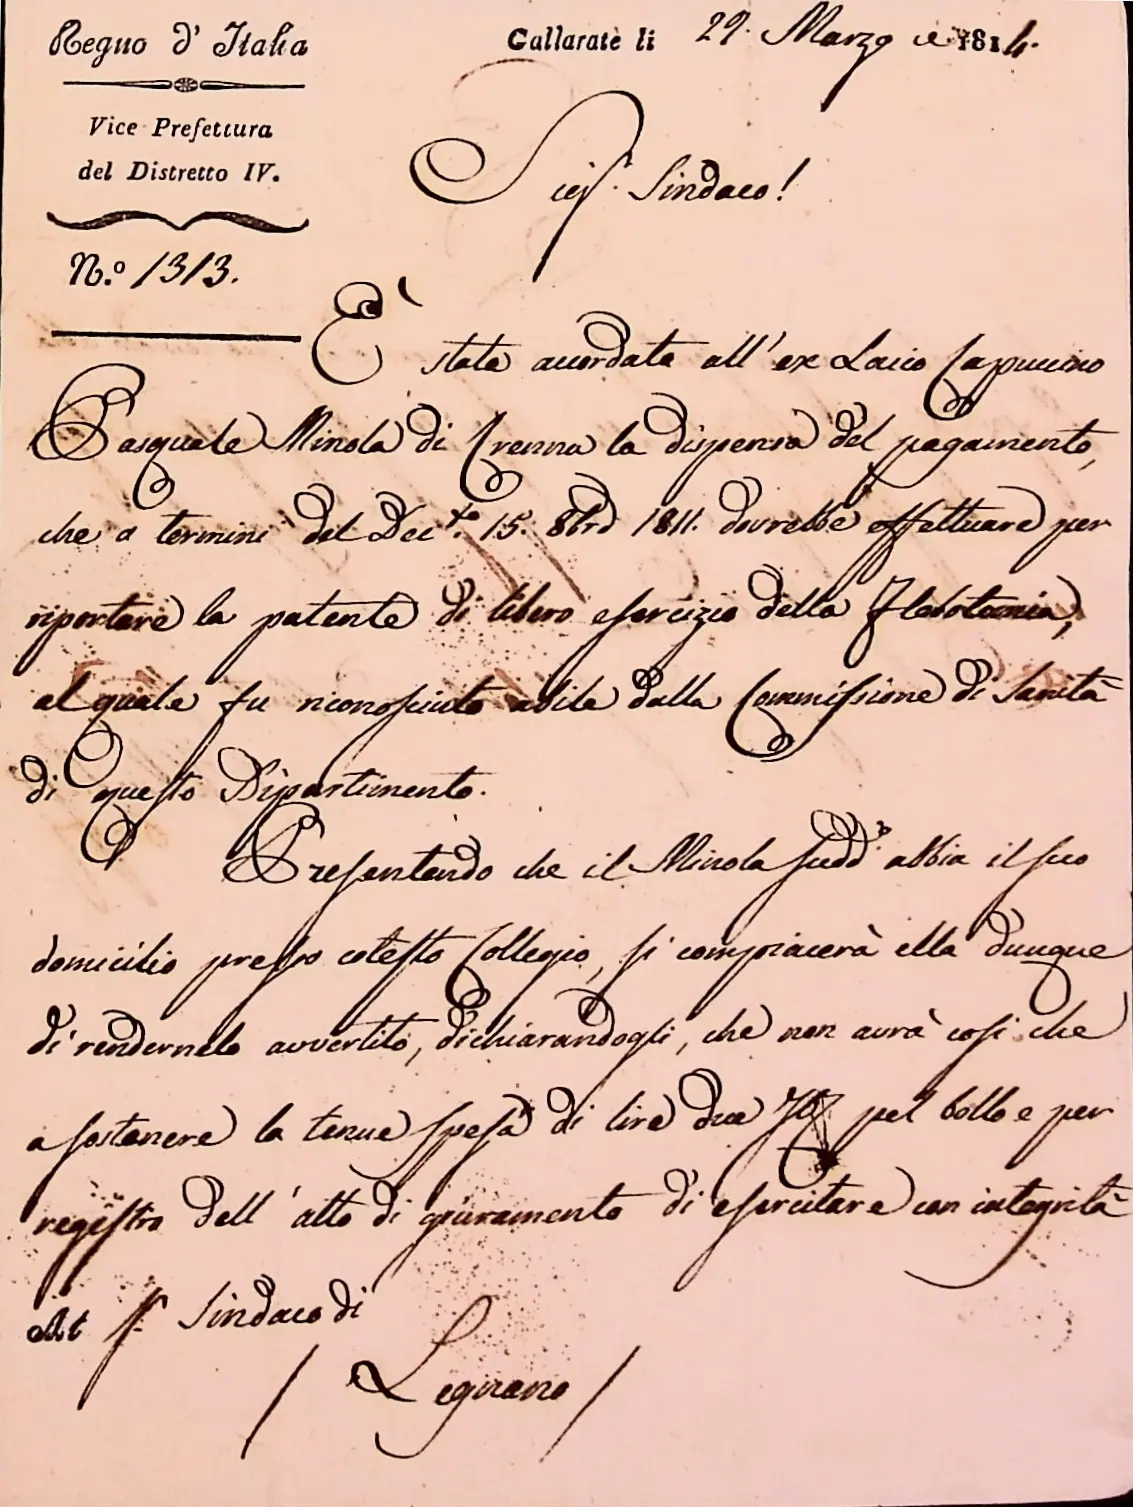 Regno d' Italia
Vice Prefettura
del Distretto IV.
N.º 1313.
Gallarate li 29. Marzo 1814.
Sindaco!
È stata accordata all' ex Laico Capucino
Pasquale Minola di Crenna la dispensa del pagamento,
che a termini del Dec.to 15. 8bre 1811. dovrebbe effettuare per
riportare la patente di libero esercizio della Flebotomia,
al quale fu riconosciuto abile dalla Commissione di Sanità
di questo Dipartimento.
Presentendo che il Minola sudd.º abbia il suo
domicilio presso cotesto Collegio, si compiacerà ella dunque
di rendernelo avvertito, dichiarandogli, che non avrà così che
a sostenere la tenue spesa di lire due pel bollo e per
registro dell' atto di giuramento di esercitare con integrità
Al Sindaco di
/ Legnano /